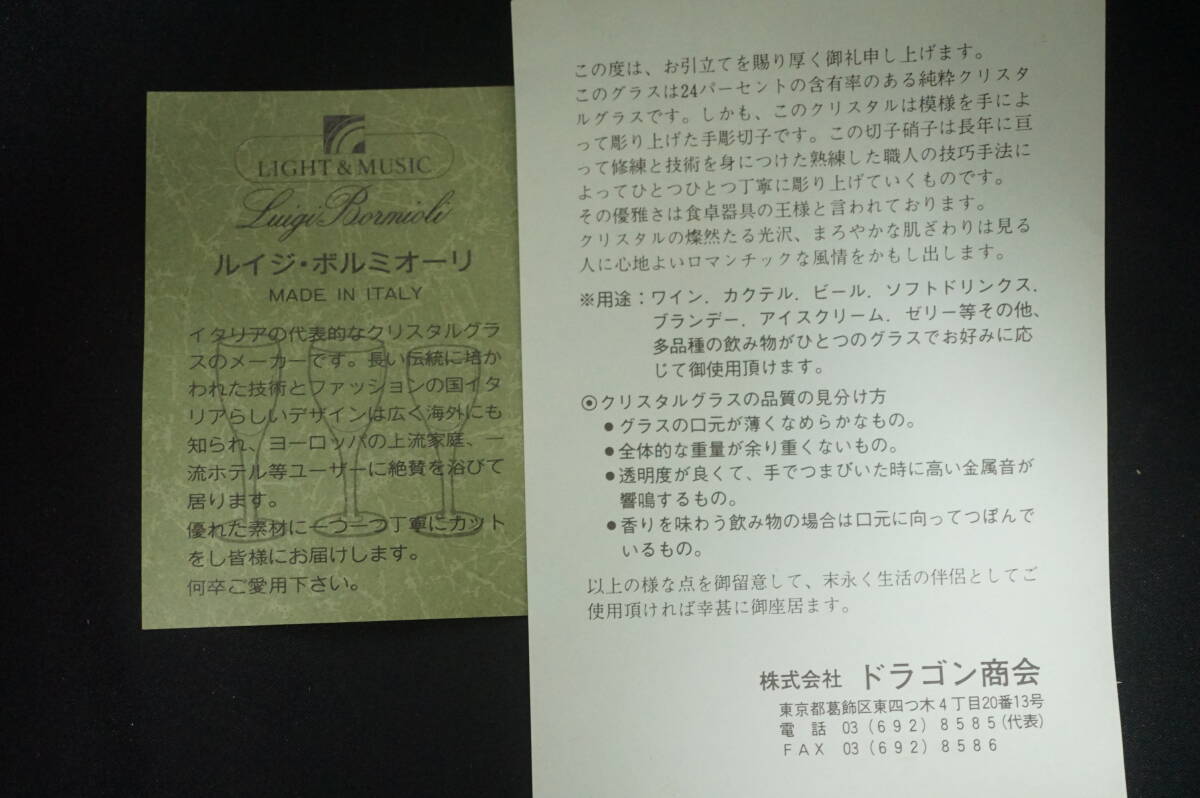 LIGHT & MUSIC
Luigi Bormioli
ルイジ・ボルミオーリ
MADE IN ITALY
イタリアの代表的なクリスタルグラ
スのメーカーです。長い伝統に培か
われた技術とファッションの国イタ
リアらしいデザインは広く海外にも
知られ、ヨーロッパの上流家庭、一
流ホテル等ユーザーに絶賛を浴びて
居ります。
優れた素材に一つ一つ丁寧にカット
をし皆様にお届けします。
何卒ご愛用下さい。
この度は、お引立てを賜り厚く御礼申し上げます。
このグラスは24パーセントの含有率のある純粋クリスタ
ルグラスです。しかも、このクリスタルは模様を手によ
って彫り上げた手彫切子です。この切子硝子は長年に亘
って修練と技術を身につけた熟練した職人の技巧手法に
よってひとつひとつ丁寧に彫り上げていくものです。
その優雅さは食卓器具の王様と言われております。
クリスタルの燦然たる光沢、まろやかな肌ざわりは見る
人に心地よいロマンチックな風情をかもし出します。
※用途：ワイン．カクテル．ビール．ソフトドリンクス．
ブランデー．アイスクリーム．ゼリー等その他、
多品種の飲み物がひとつのグラスでお好みに応
じて御使用頂けます。
◉クリスタルグラスの品質の見分け方
●グラスの口元が薄くなめらかなもの。
●全体的な重量が余り重くないもの。
●透明度が良くて、手でつまびいた時に高い金属音が
響鳴するもの。
●香りを味わう飲み物の場合は口元に向ってつぼんで
いるもの。
以上の様な点を御留意して、末永く生活の伴侶としてご
使用頂ければ幸甚に御座居ます。
株式会社 ドラゴン商会
東京都葛飾区東四つ木4丁目20番13号
電 話 03(692)8585(代表)
FAX 03(692)8586